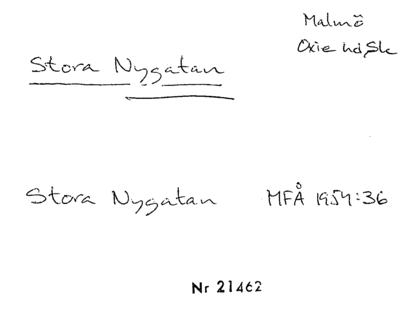 Malmö
Oxie hd, Sk
Stora Nygatan
Stora Nygatan MFÅ 1954:36
Nr 21462